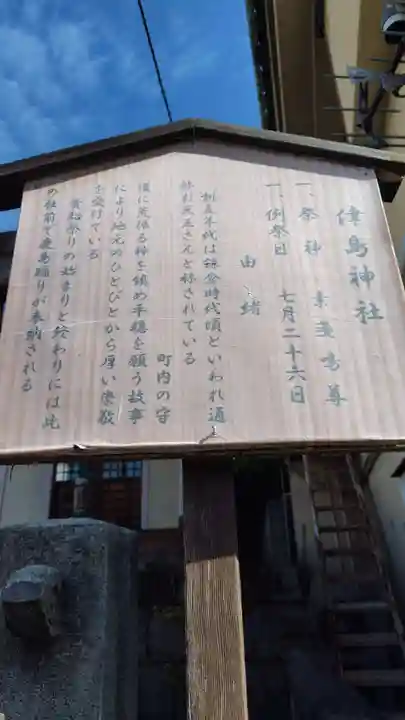 津島神社
一、祭神 素戔嗚尊
一、例祭日 七月二十六日
由緒
創立年代は鎌倉時代頃といわれ通
称お天王さんと称されている
町内の守
護に荒振る神を鎮め平穏を願う故事
により地元のひとびとから厚い崇敬
を受けている
貴船祭りの始まりと終わりには此
の社前で鹿島踊りが奉納される